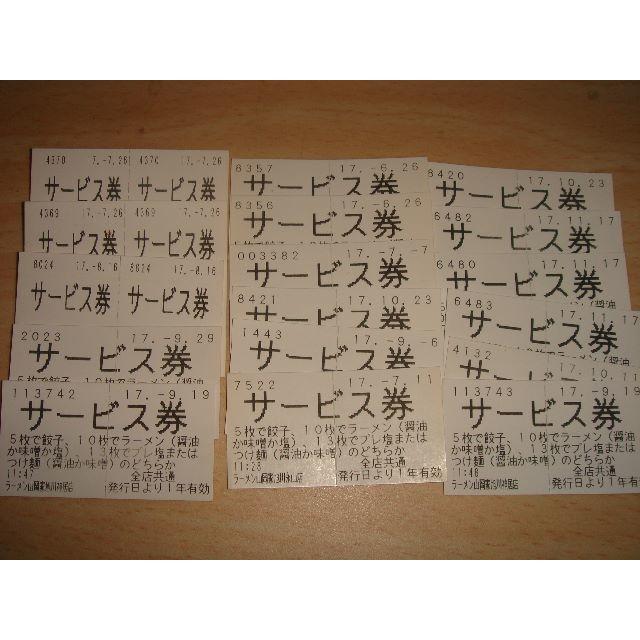 4370 17.-7.26 4370 17.-7.26
サービス券 サービス券
4369 17.-7.26 4369 17.-7.26
サービス券 サービス券
8624 17.-8.16 8624 17.-8.16
サービス券 サービス券
2023 17.-9.29
サービス券
5枚で餃子、10枚でラーメン(醤油
113742 17.-9.19
サービス券
5枚で餃子、10枚でラーメン(醤油
か味噌か塩)、13枚でプレ塩または
つけ麺(醤油か味噌)のどちらか
11:47 全店共通
発行日より1年有効
8357 17.-6.26
サービス券
8356 17.-6.26
サービス券
003382 17.-7.-7
サービス券
8421 17.10.23
サービス券
1443 17.-9.-6
サービス券
7522 17.-7.11
サービス券
5枚で餃子、10枚でラーメン(醤油
か味噌か塩)、13枚でプレ塩または
つけ麺(醤油か味噌)のどちらか
11:28 全店共通
発行日より1年有効
8420 17.10.23
サービス券
6482 17.11.17
サービス券
6480 17.11.17
サービス券
6483 17.11.17
サービス券
4132 17.10.11
113743 17.-9.19
サービス券
5枚で餃子、10枚でラーメン(醤油
か味噌か塩)、13枚でプレ塩または
つけ麺(醤油か味噌)のどちらか
11:48 全店共通
発行日より1年有